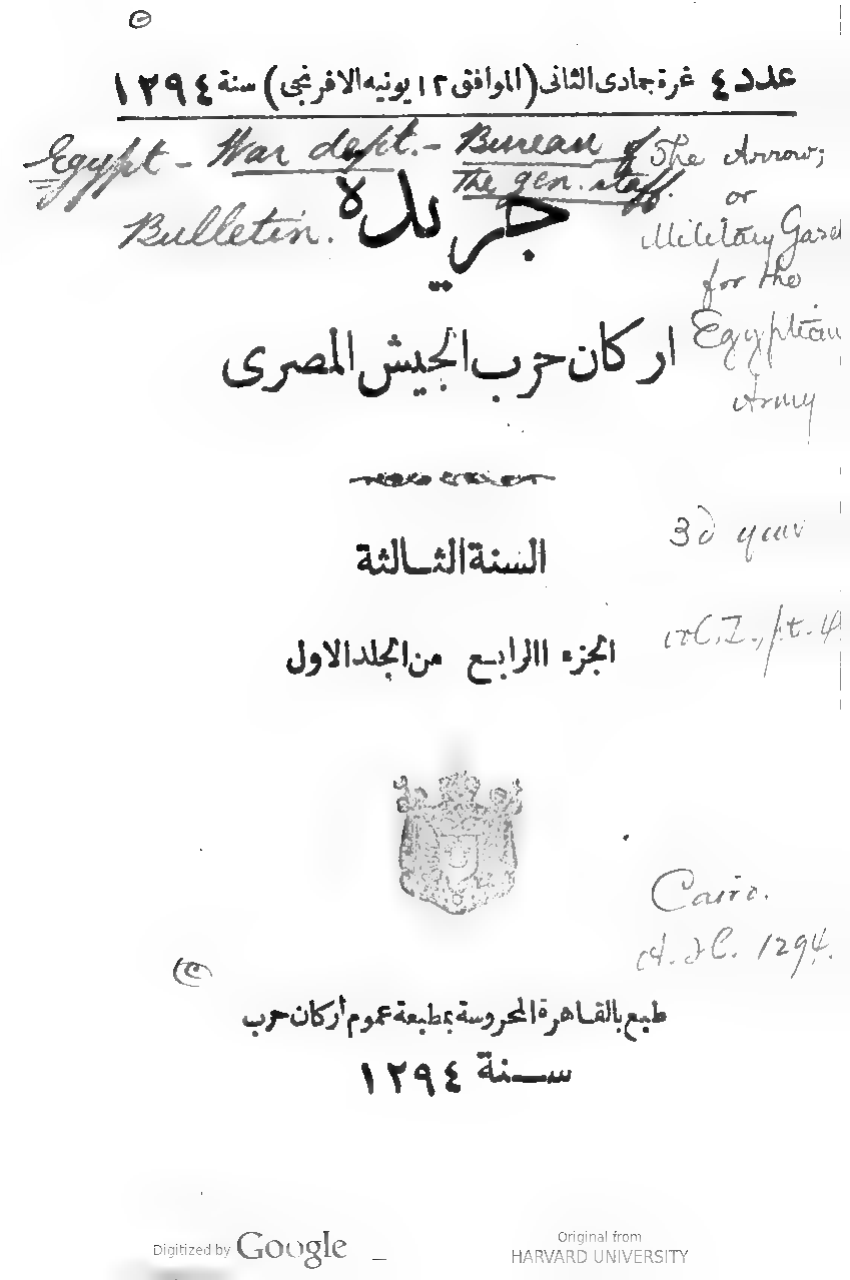 عدد ٤ غرة جمادى الثانى (الموافق ١٢ يونيه الافرنجى) سنة ١٢٩٤
Egypt - War dept. - Bureau of
the gen. staff.
Bulletin.
The Arrow;
or
Military Gaze
for the
Egyptian
Army
جريدة
اركان حرب الجيش المصرى
السنة الثالثة
3d year
الجزء االرابع من المجلد الاول
pt. 4
Cairo.
A. H. 1294.
طبع بالقاهرة المحروسة بمطبعة عموم أركان حرب
سنة ١٢٩٤
Digitized by Google
Original from
HARVARD UNIVERSITY